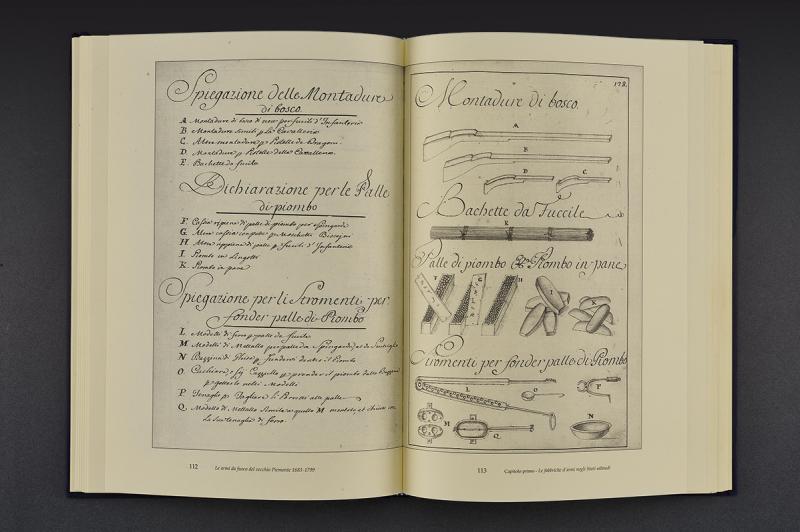 Spiegazione delle Montadure
di bosco
A Montadure di bosco di noce per fucili d'Infanteria
B Montadure simili p la Cavalleria
C. Altre montadure p Pistolle de Dragoni
D. Montadure p Pistolle della Cavalleria
E. Bachette da fucile
Dichiarazione per le Palle
di piombo
F Cassia ripiena di palle di piombo per spingarde
G. Altra cassia con palle p Moschetti
H Altra rippiena di palle p fucili d'Infanteria
I. Piombo in Lingotti
K Piombo in pane
Spiegazione per li Stromenti per
fonder palle di Piombo
L Modelli di ferro p palle da fucile
M Modelli di Mettallo per palle da Spingarde, et de
N Bazzina di p fondervi dentro il Piombo
O. Cuchiara, o sij Cazzullo p prender il piombo dalla Bazzina
p gettarlo nelli Modelli
P Tenaglie p Tagliare li alle palle
Q. Modello di Mettallo Simile a quello M montato, et chiuso con
la sua tenaglia di ferro.
112
Le armi da fuoco del vecchio Piemonte 1683-1799
178.
Montadure di bosco
A
B
D
C
Bachette da Fuccile
E
Palle di piombo Piombo in pane
F
G
H
I
K
Stromenti per fonder palle di Piombo
L
O
P
M
Q
N
113
Capitolo primo - Le fabbriche d'armi negli Stati sabaudi